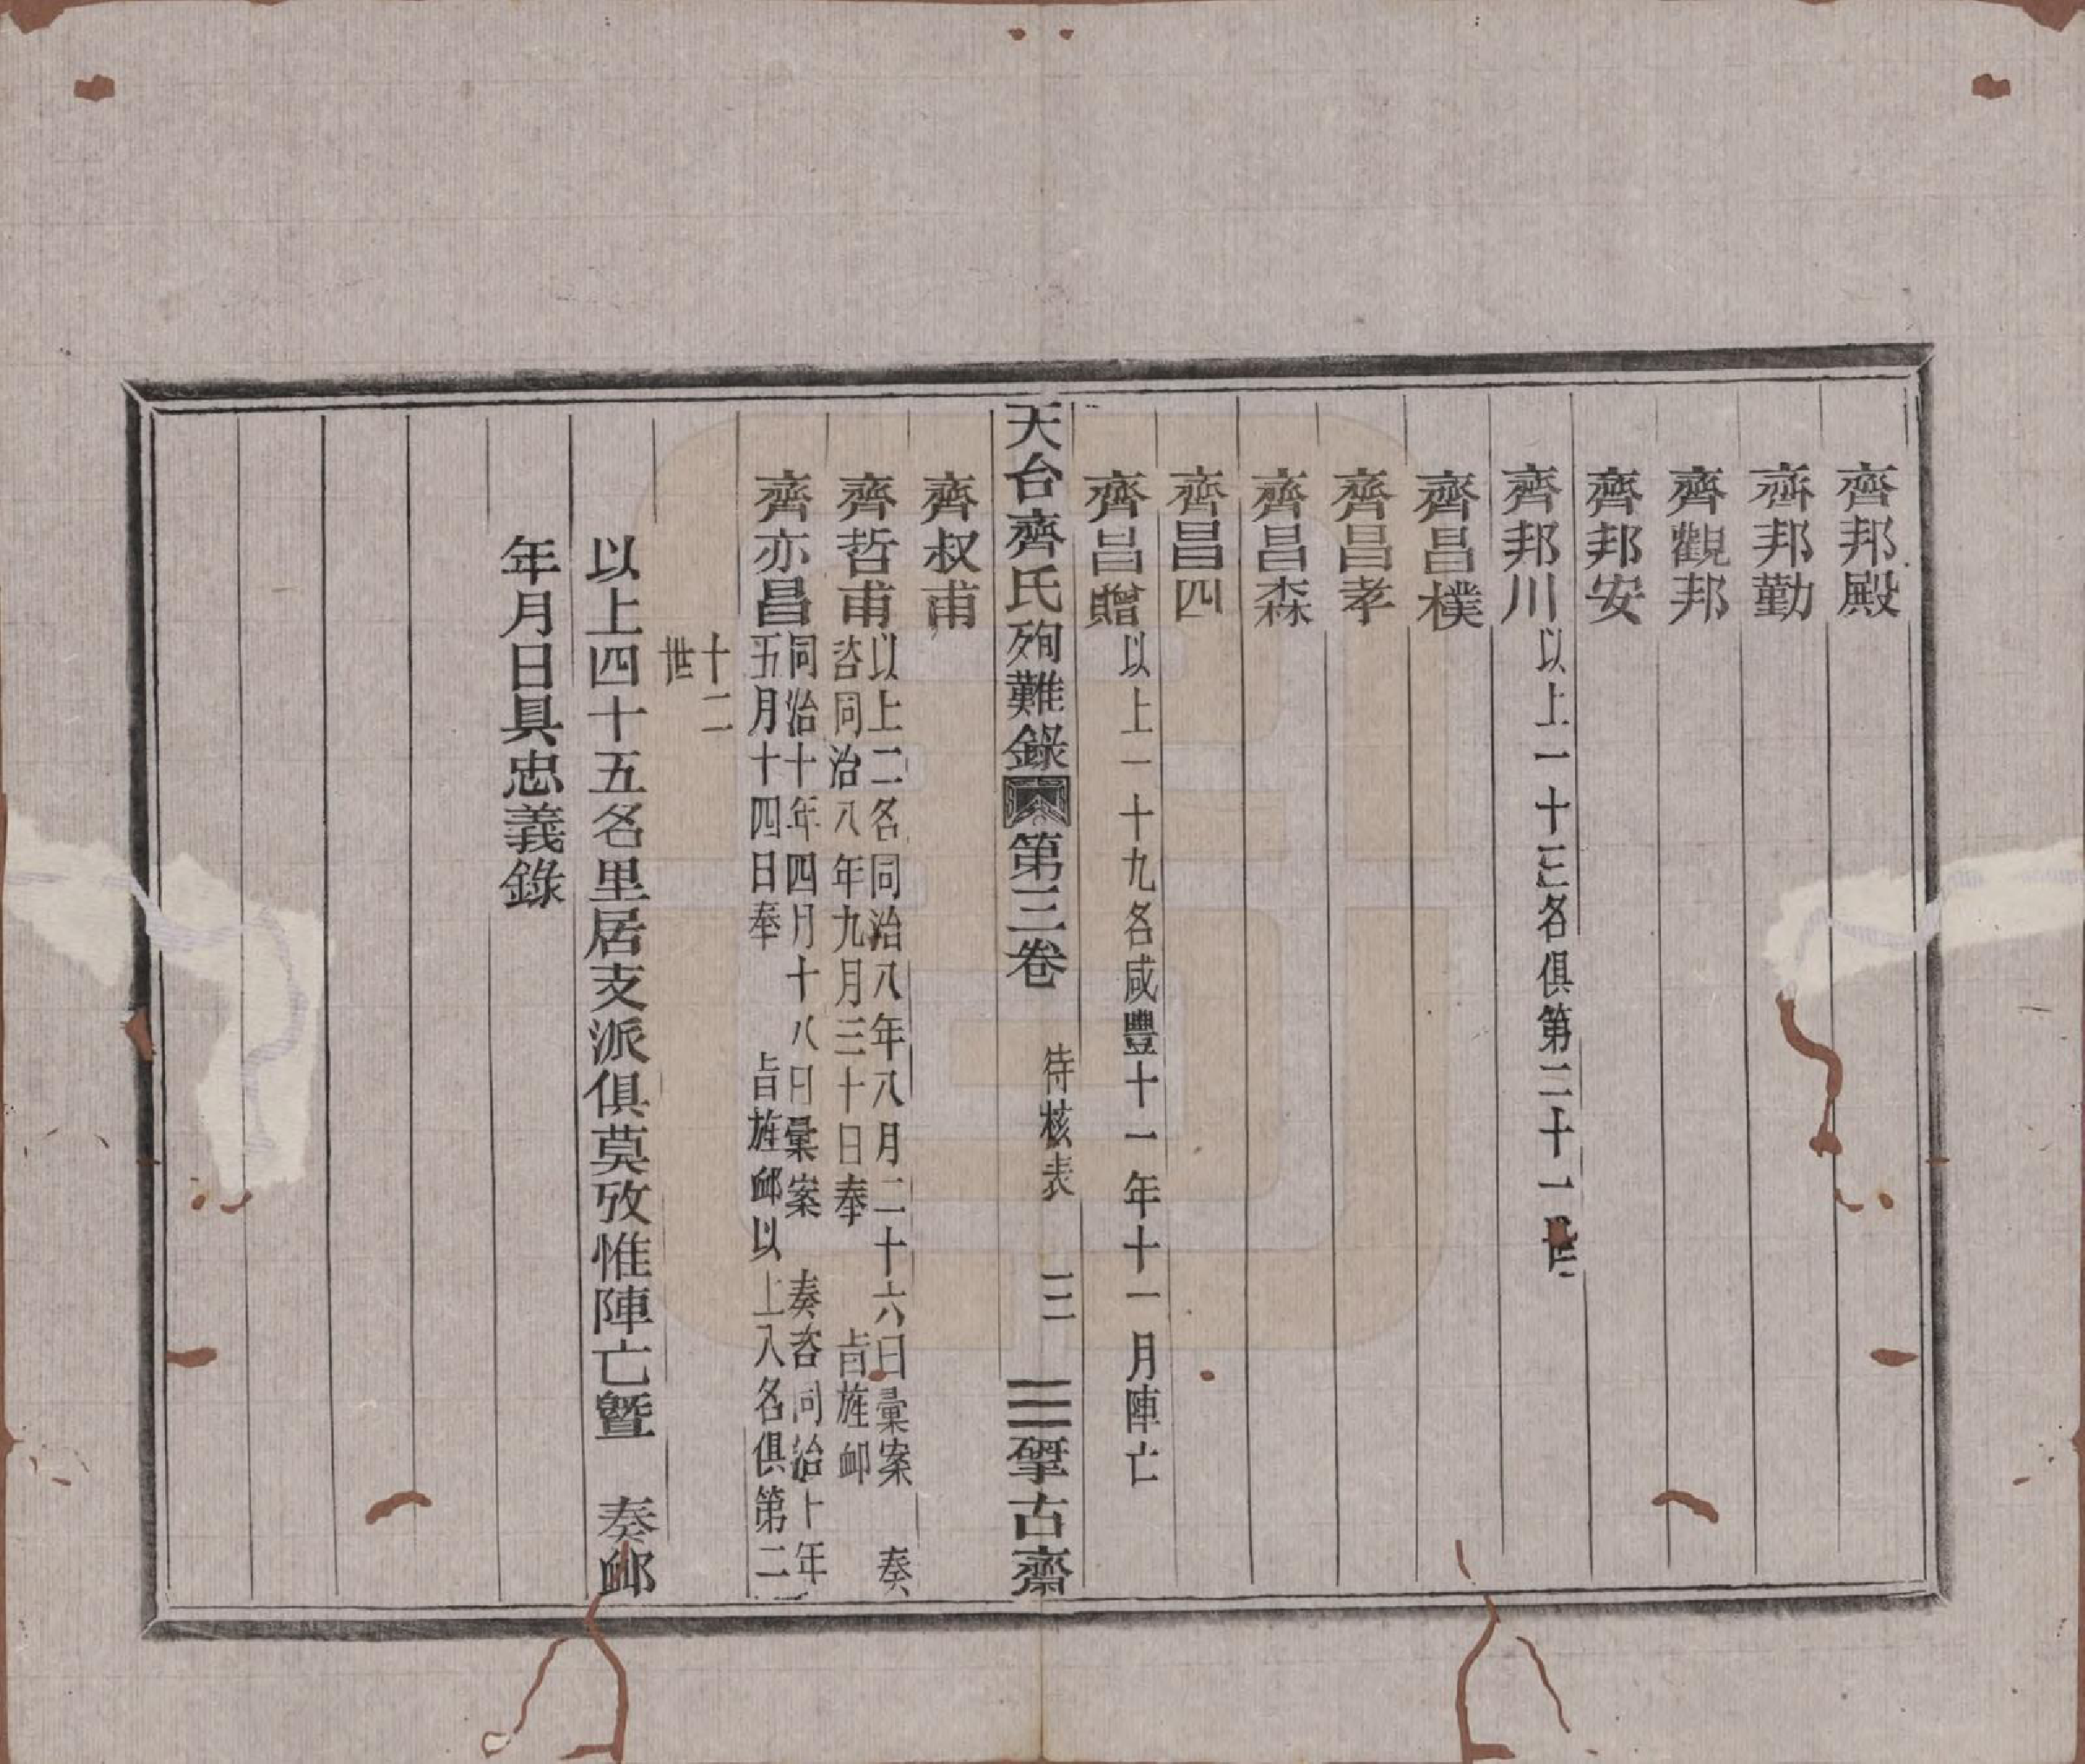 齊邦殿
齊邦勤
齊觀邦
齊邦安
齊邦川以上一十三名俱第二十一世
齊昌樸
齊昌孝
齊昌森
齊昌四
齊昌贈以上一十九名咸豐十一年十一月陣亡
天台齊氏殉難錄 第三卷 待核表 三 揅古齋
齊叔甫
齊哲甫以上二名同治八年八月二十六日彙案 奏
咨同治八年九月三十日奉 旨旌卹
齊亦昌同治十年四月十八日彙案 奏咨同治十年
五月十四日奉 旨旌卹以上八名俱第二
十二
世
以上四十五名里居支派俱莫攷惟陣亡暨 奏卹
年月日具忠義錄